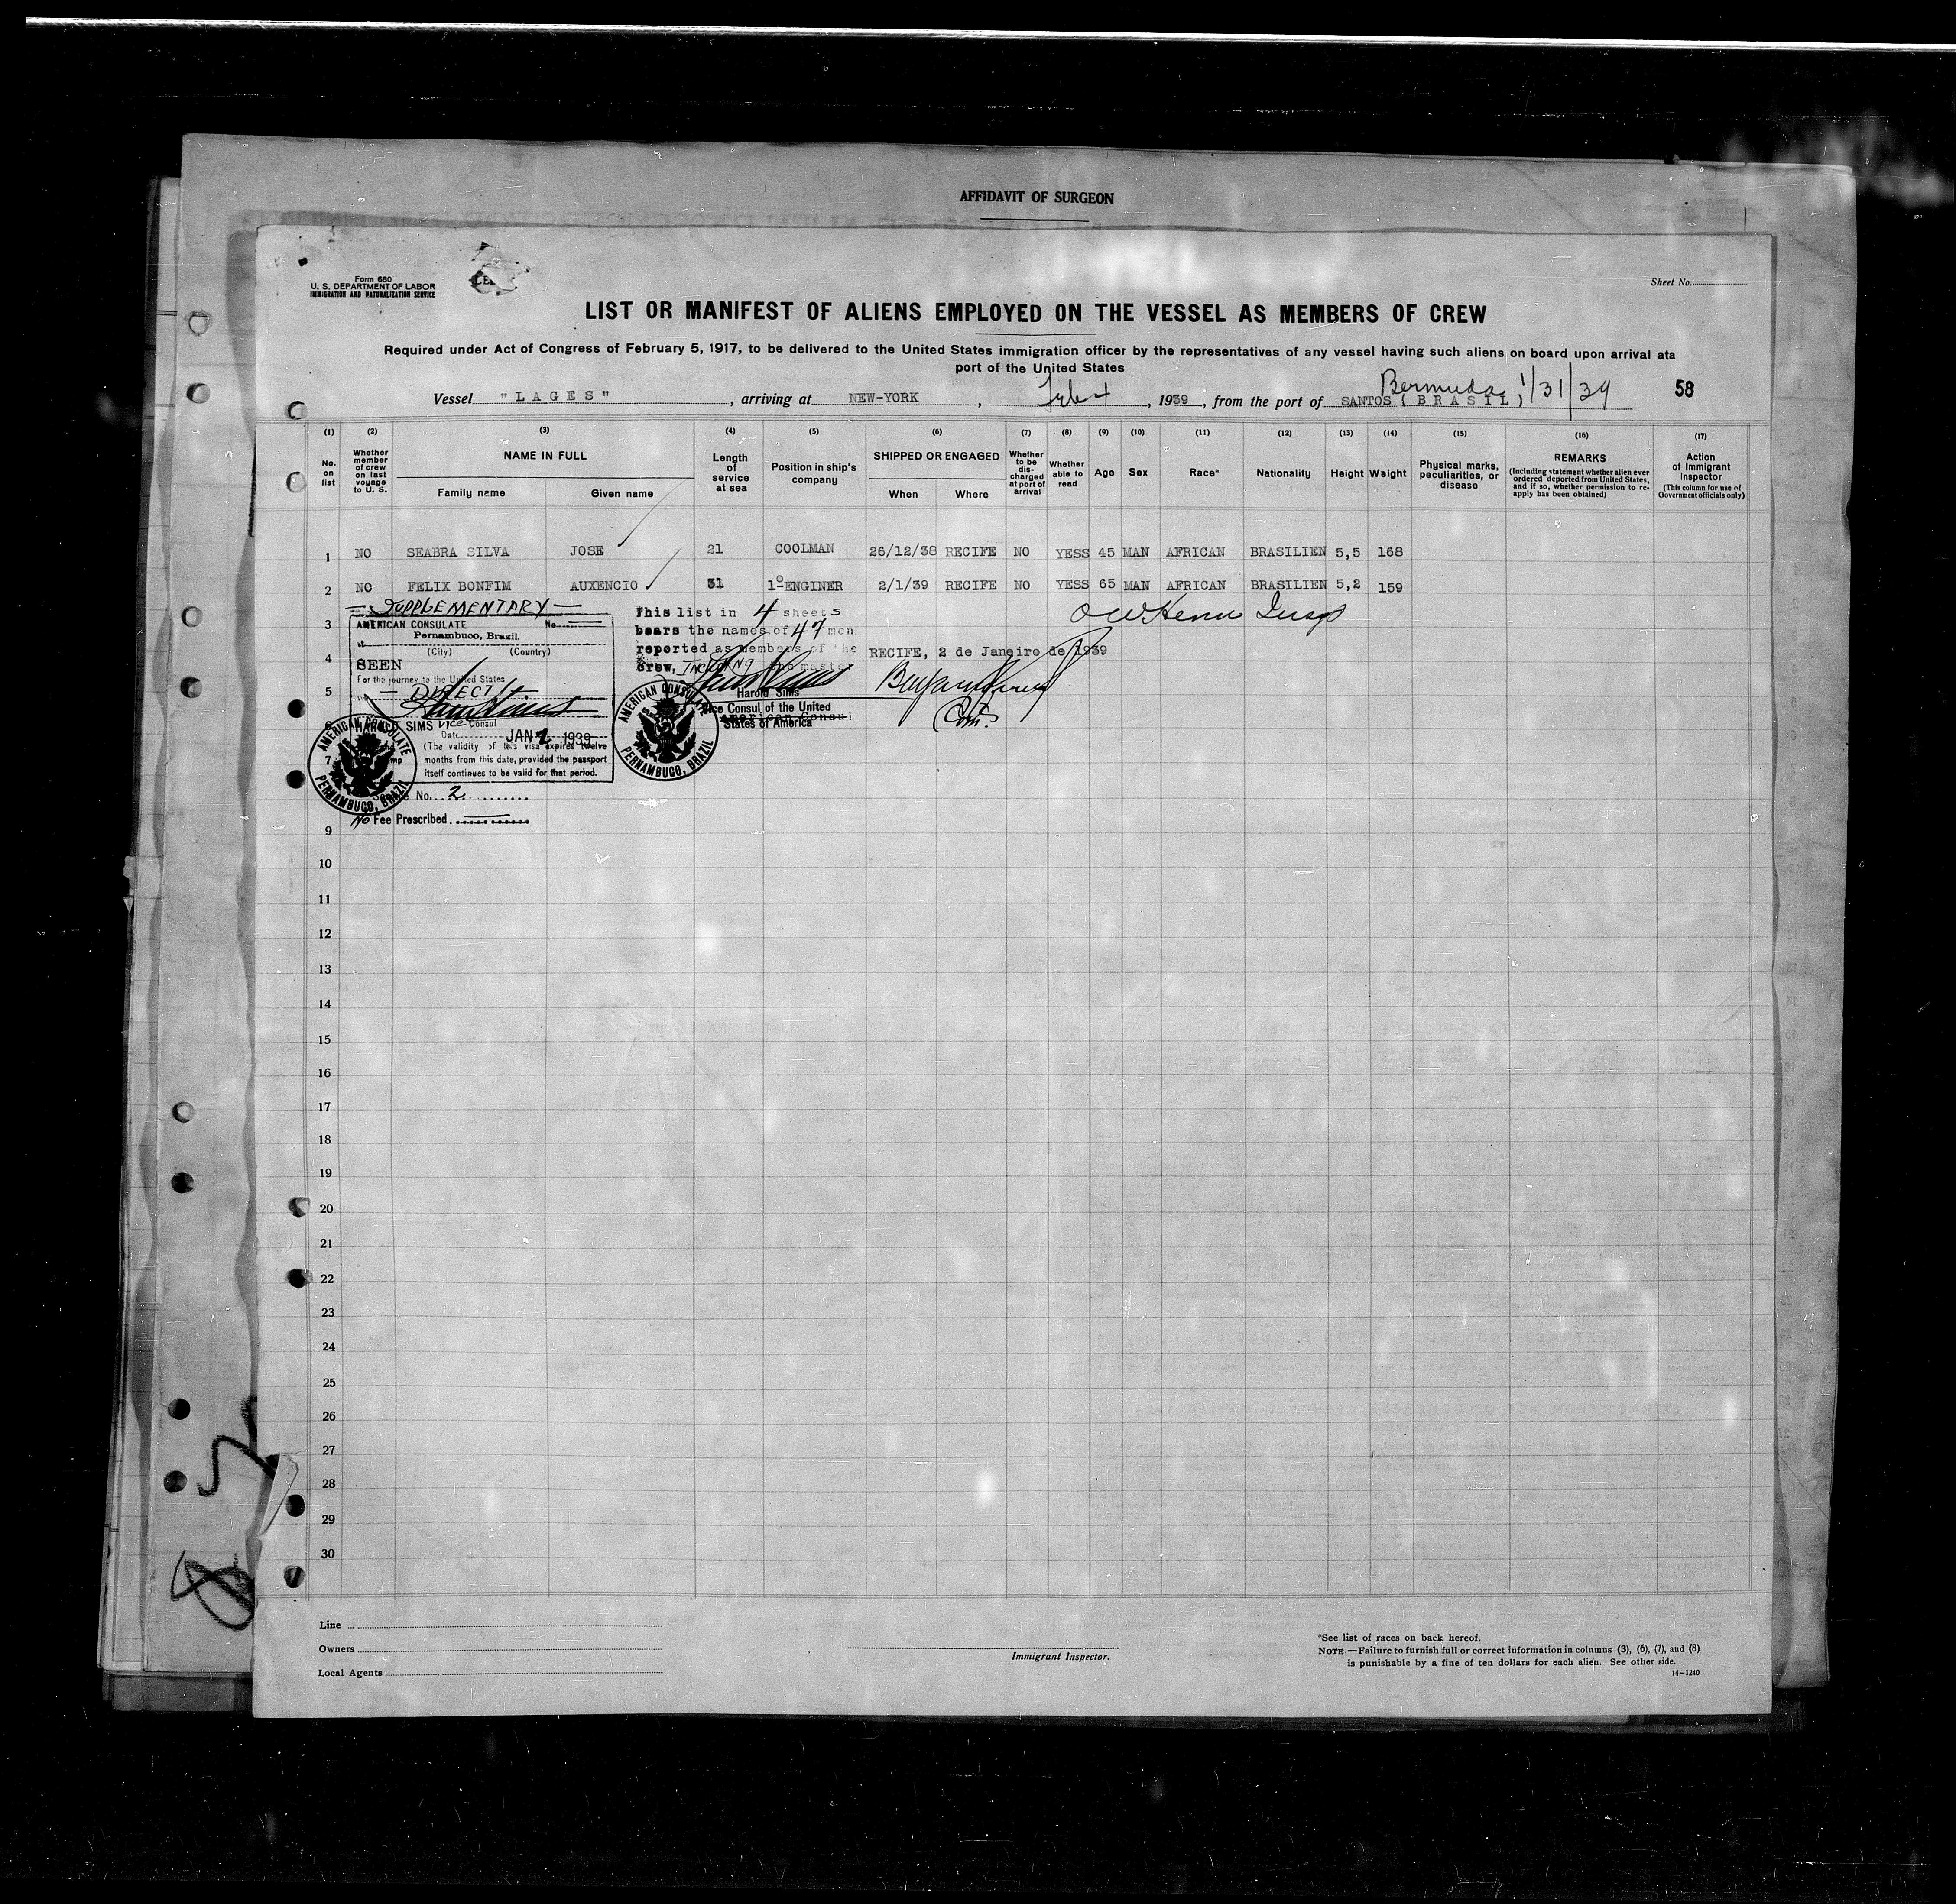 AFFIDAVIT OF SURGEON
Form 680
U. S. DEPARTMENT OF LABOR
IMMIGRATION AND NATURALIZATION SERVICE
Sheet No.
LIST OR MANIFEST OF ALIENS EMPLOYED ON THE VESSEL AS MEMBERS OF CREW
Required under Act of Congress of February 5, 1917, to be delivered to the United States immigration officer by the representatives of any vessel having such aliens on board upon arrival at a
port of the United States
Bermuda, 1/31/39
Vessel "LAGES", arriving at NEW-YORK, Feb 4, 1939, from the port of SANTOS (BRASIL)
58
(1) (2) (3) (4) (5) (6) (7) (8) (9) (10) (11) (12) (13) (14) (15) (16) (17)
No. on list
Whether member of crew on last voyage to U. S.
NAME IN FULL
Family name Given name
Length of service at sea
Position in ship's company
SHIPPED OR ENGAGED
When Where
Whether to be discharged at port of arrival
Whether able to read
Age
Sex
Race*
Nationality
Height
Weight
Physical marks, peculiarities, or disease
REMARKS
(Including statement whether alien ever ordered deported from United States, and if so, whether permission to reapply has been obtained)
Action of Immigrant Inspector
(This column for use of Government officials only)
1 NO SEABRA SILVA JOSE 21 COOLMAN 26/12/38 RECIFE NO YESS 45 MAN AFRICAN BRASILIEN 5,5 168
2 NO FELIX BONFIM AUXENCIO 31 1º ENGINER 2/1/39 RECIFE NO YESS 65 MAN AFRICAN BRASILIEN 5,2 159
— SUPPLEMENTARY —
AMERICAN CONSULATE No.
Pernambuco, Brazil.
(City) (Country)
SEEN
For the journey to the United States
— DIRECT
HAROLD SIMS Vice Consul
Date JAN 2 1939
(The validity of this visa expires twelve
months from this date, provided the passport
itself continues to be valid for that period.
AMERICAN CONSULATE
PERNAMBUCO, BRAZIL
No. 2
No Fee Prescribed.
This list in 4 sheets
bears the names of 47 men
reported as members of the
crew, INCLUDING the master
Harold Sims
Vice Consul of the United
States of America
American Consul
AMERICAN CONSULATE
PERNAMBUCO, BRAZIL
RECIFE, 2 de Janeiro de 1939
3
4
5
6
7
9
10
11
12
13
14
15
16
17
18
19
20
21
22
23
24
25
26
27
28
29
30
Line
Owners
Local Agents
Immigrant Inspector.
*See list of races on back hereof.
NOTE.—Failure to furnish full or correct information in columns (3), (6), (7), and (8)
is punishable by a fine of ten dollars for each alien. See other side.
14—1240